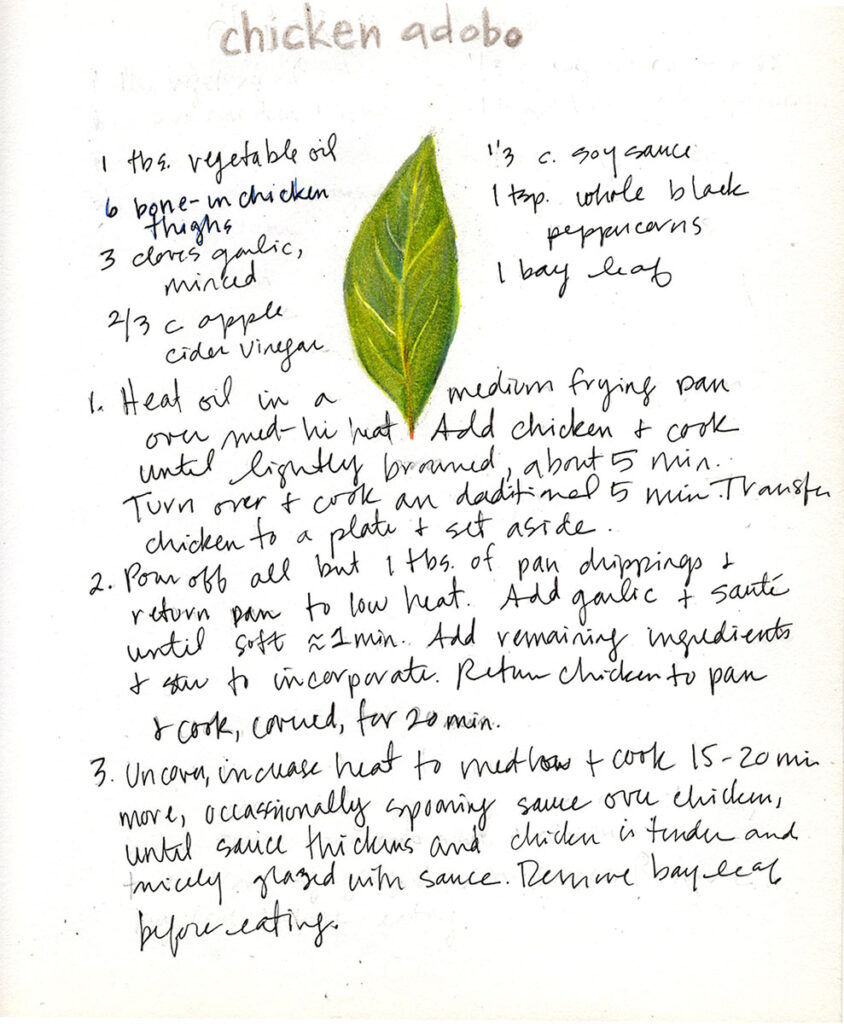 chicken adobo
1 tbs. vegetable oil
6 bone-in chicken
thighs
3 cloves garlic,
minced
2/3 c apple
cider vinegar
1/3 c. soy sauce
1 tsp. whole black
peppercorns
1 bay leaf
1. Heat oil in a medium frying pan
over med-hi heat Add chicken + cook
until lightly browned, about 5 min.
Turn over + cook an dadditional 5 min. Transfer
chicken to a plate + set aside.
2. Pour off all but 1 tbs. of pan drippings +
return pan to low heat. Add garlic + sauté
until soft ≈1 min. Add remaining ingredients
+ stir to incorporate. Return chicken to pan
+ cook, covered, for 20 min.
3. Uncover, increase heat to med low + cook 15-20 min
more, occassionally spooning sauce over chicken,
until sauce thickens and chicken is tender and
nicely glazed with sauce. Remove bay leaf
before eating.